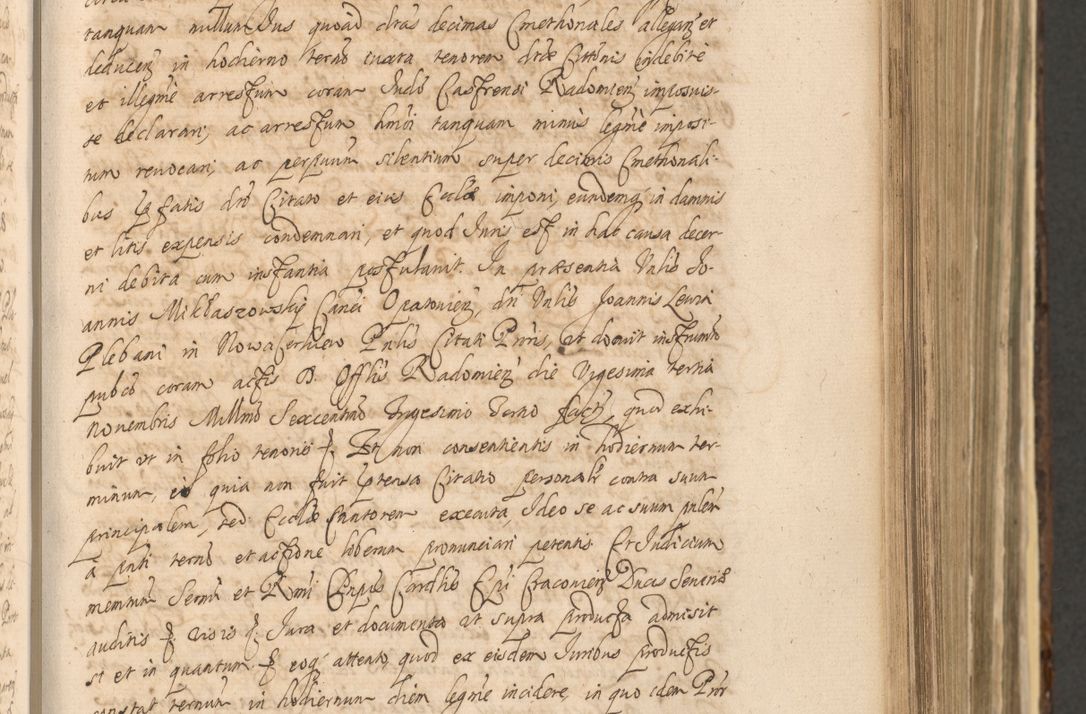 tanquam nullum Ius quoad dtas decimas Cmethonales allegan et
deducen in hodierno termo iuxta tenorem dtae Cittonis indebite
et illegme arrestum coram Iudo Castrensi Radomien imposuis-
se declarari, ac arrestum hmoi tanquam minus legme imposi-
tum revocari, ac perpuum silentium super decimis Cmethonali-
bus pfatis dto Citato et eius Ecclae imponi, eundemq in damnis
et litis expensis condemnari, et quod Iuris est in hac causa decer-
ni debita cum instantia postulavit. In praesentia Vnlis Jo-
annis Mikłaszowsky Canci Opatovien, dni Vnlis Joannis Leura
Plebani in Nowa Cerkiew Pnlis Citati Pnris, ut docuit instrumto
pubco coram actis B. Offlis Radomien die Vigesima tertia
Novembris Millmo Sexcentmo Trigesimo Tertio facti, quod exhi-
buit ut in folio tenoris f. Et non consentientis in hodiernum ter-
minum, eo quia non fuit ptensa Citatio personalr contra suum
principalem, sed Ecclae Cantorem executa, Ideo se ac suum pnlem
a pnti termo et actione liberum pronunciari petentis Et Iudicium
memtum Sermi et Rmi Cnpis Cardlis Epi Cracovien Ducis Severis
auditis f. visis q. Iura et documenta ut supra producta admisit
si et in quantum f eoq attento, quod ex eisdem Iuribus productis
constat termum in hodiernum diem legme incidere, in quo idem Pnr